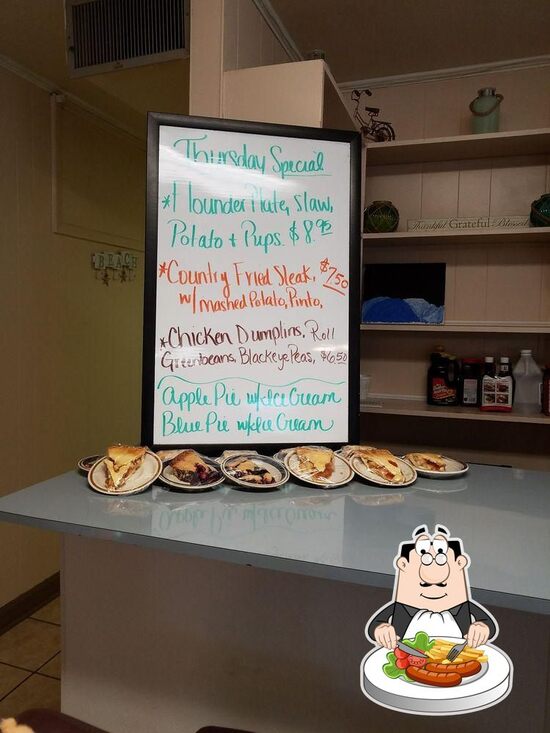 Thursday Special
*Flounder Plate, Slaw,
Potato + Pups. $8.95
*Country Fried Steak, $7.50
w/mashed Potato, Pinto,
*Chicken Dumplins, Roll
Greenbeans, Blackeye Peas, $6.50
Apple Pie w/Ice Cream
Blue Pie w/Ice Cream
Thankful Grateful Blessed
BEACH